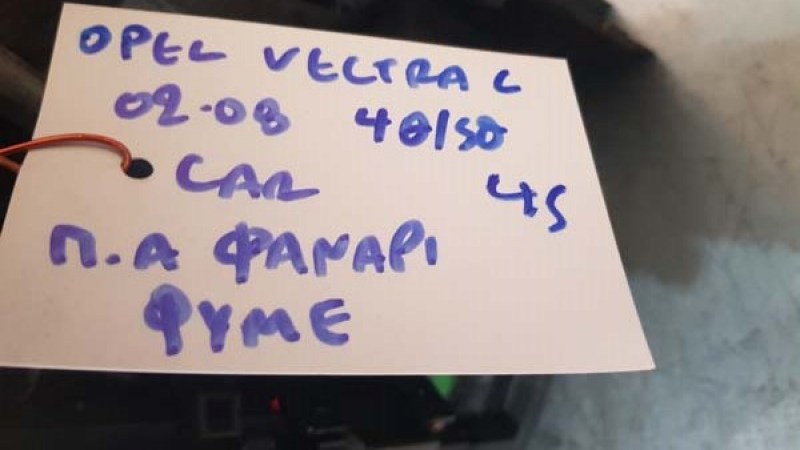 OPEL VECTRA C
02-08 4θ/5θ
CAR 45
Π.Α ΦΑΝΑΡΙ
ΦΥΜΕ